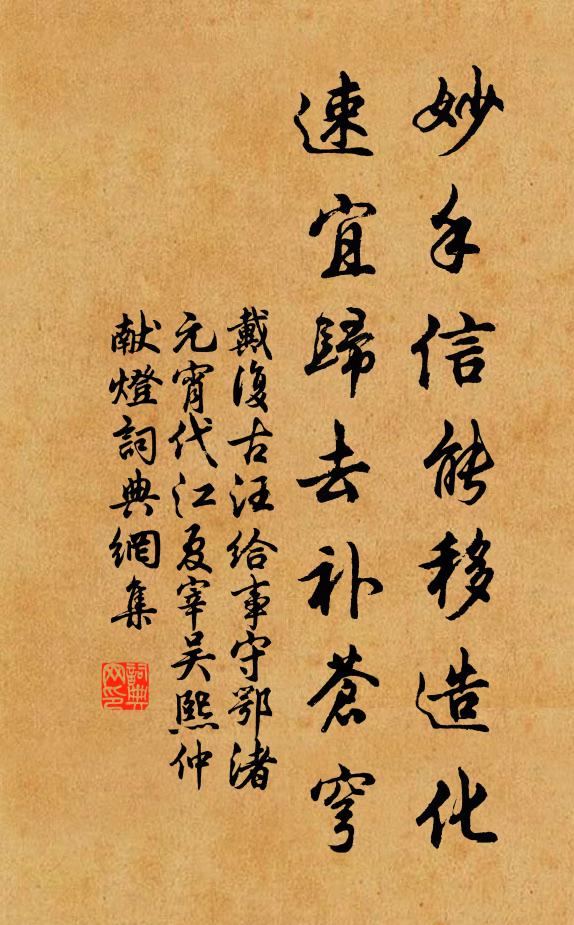 妙手信能移造化
速宜歸去补蒼穹
戴復古汪給事守鄂渚
元宵代江夏宰吴熙仲
献燈詞典網集
詞典网印